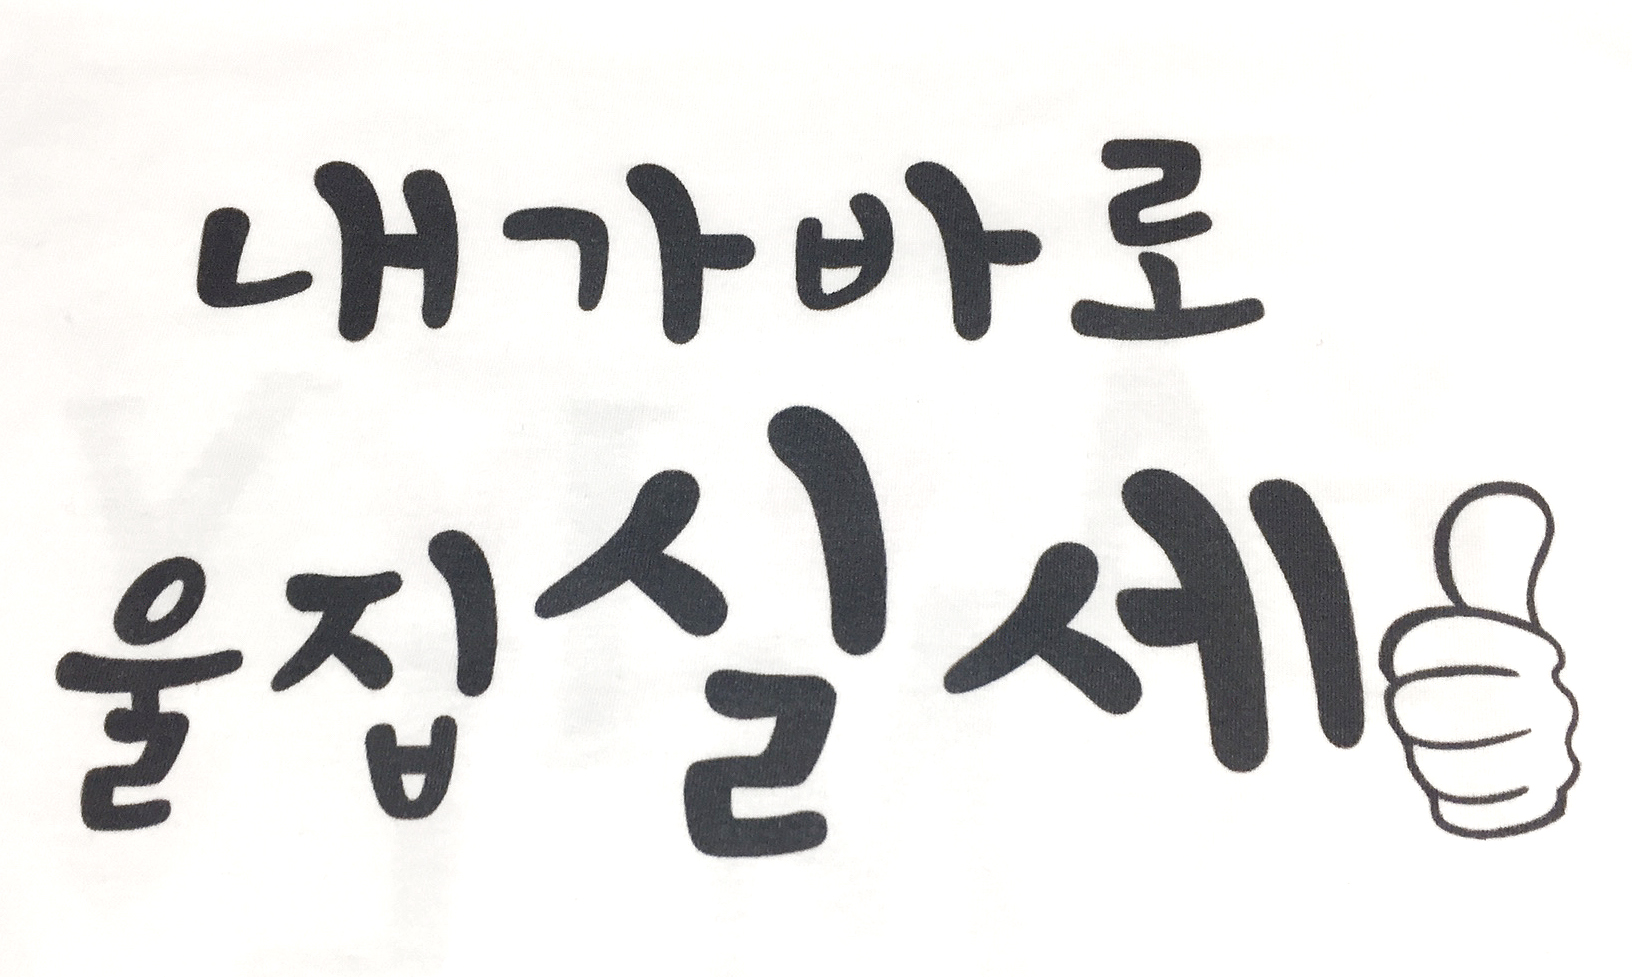 내가바로
울집실세